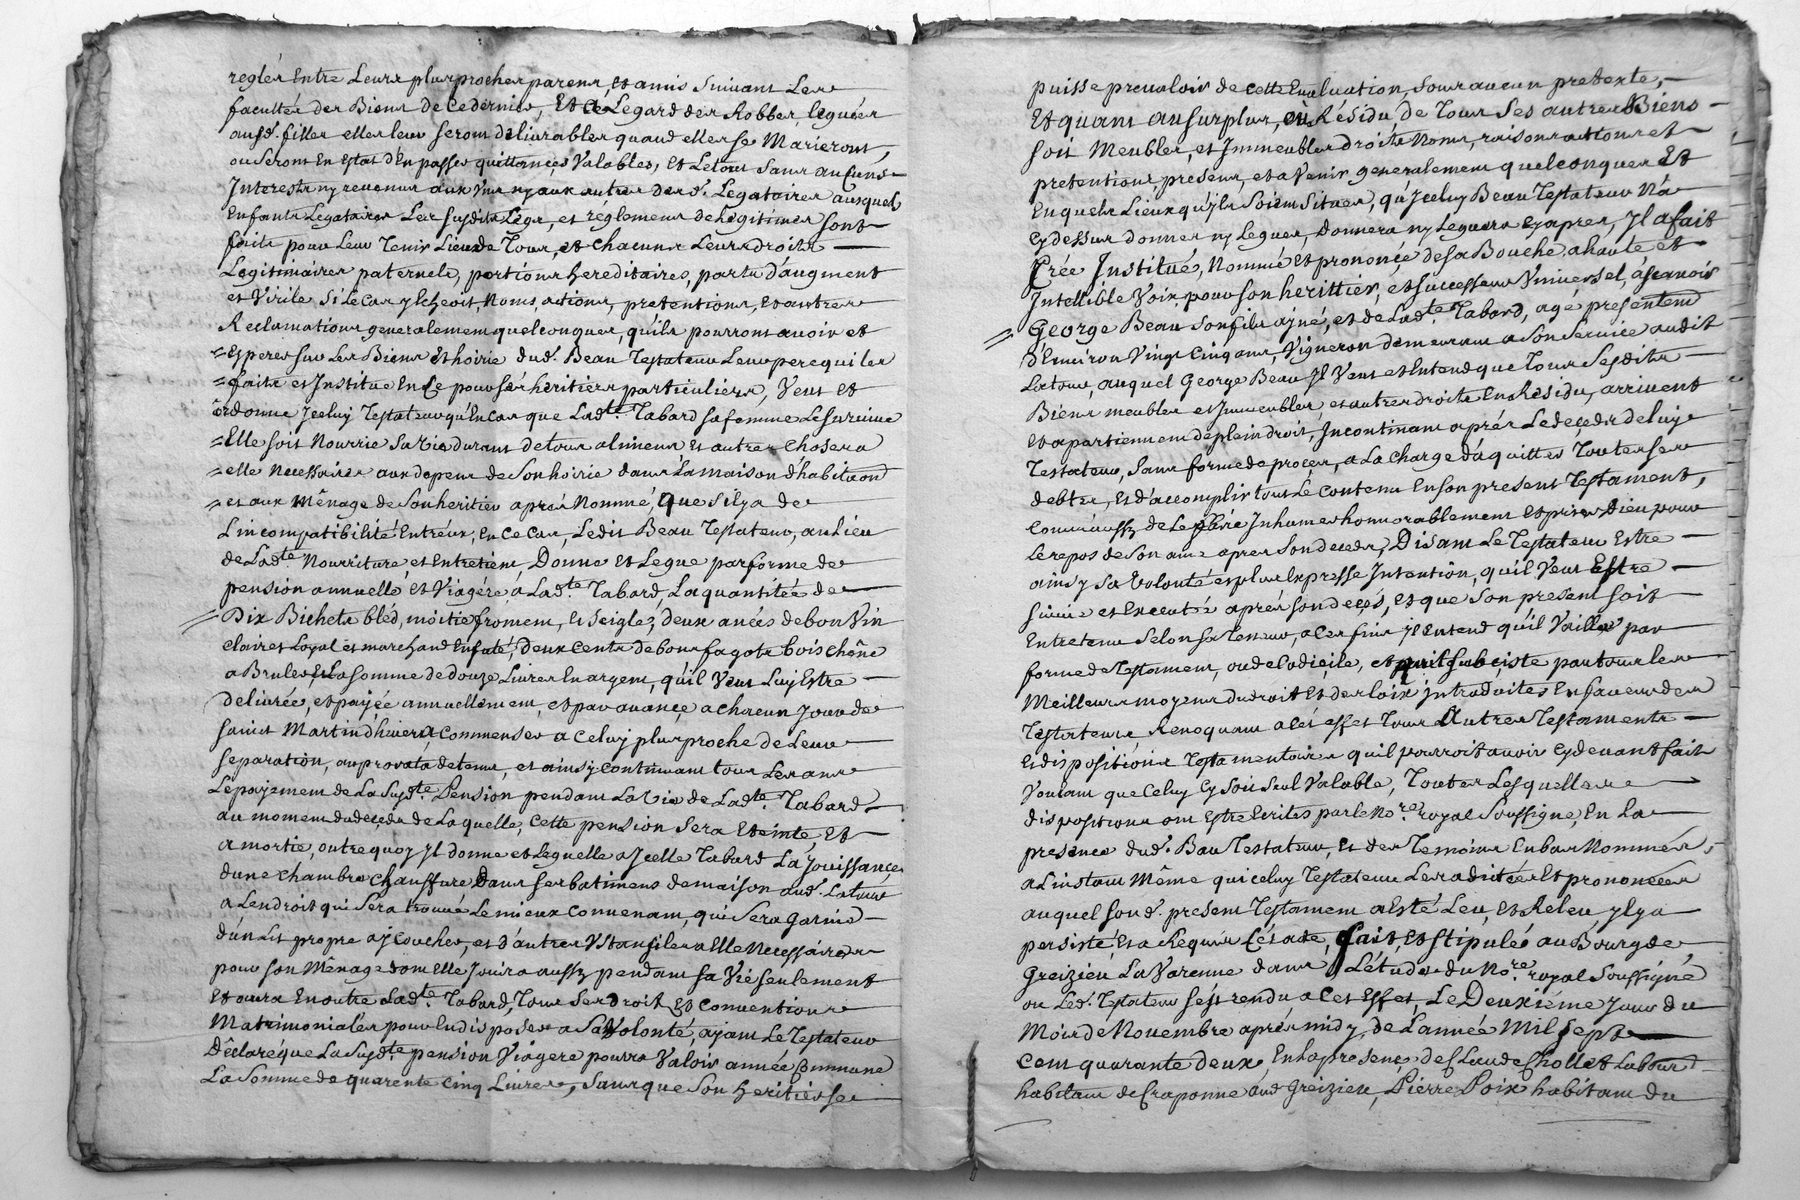 reglér Entre Leurs plus procher parens, et amis suivant Les
facultée der Biens de Cedernier, Et a Legard der Robber, leguéer
ausd. filler eller leur seront delivrabler quand eller se Marieront,
ou seront En Estat d'En passer quittances Valabler, Et Letout Sans aucuns
Interests ny revenus aux uns ny aux autrer desd. Legatairer ausquels
Enfants Legatairer Les susdits Légs, et réglemens de Légitimer sont
faits pour Leur Tenir Lieu de Tous, et chacuns Leurs droits
Legitimairer paternels, portions hereditaires, parts d'augment
et Virile si Le Cas y Echeoit, Noms, actions, pretentions, Et autrer
Reclamations generalement quelconquer, qu'ils pourront avoir et
Esperer sur Les Biens et hoirie dud. Beau Testateur Leur pere qui les
faits et Institue En Ce pour sés heritiers particuliers, Veut et
ordonne Iceluy Testateur qu'En cas que Ladte. Tabard sa femme Le survive
Elle soit Nourrie sa vie durant de tous alimens et autrer choser a
elle Necessairer aux depens de son hoirie dans La maison d'habitaon
et aux Mênage de Son heritier aprés Nommé, Que s'il y a de
L'incompatibilité Entréux, En ce Cas, Ledit Beau Testateur, au Lieu
de Ladte. Nourriture, et Entretiens, Donne et Legue par forme de
pension annuelle et Viagére, a Ladte. Tabard, La quantitée de
Dix Bichets bléd, moitie froment, et seigle, deux anées de bon Vin
clair et Loyal et marchand Enfuté, deux cents de bons fagots bois chêne
a Bruler, Et La somme de douze Livrer En argent, qu'il Veut Luy Estre
delivrée, et payée annuellement, et par avance a chacun jour de
saint Martin d'hiver, a Commenser a Celuy plus proche de Leur
separation, au prorata de tems, et ainsy continuant tous Les ans
Le payement de La susdte. Pension pendant La Vie de Ladte. Tabard
au moment du deceds de Laquelle, Cette pension Sera Eteinte, Et
amortie, outre quoy Il donne et Leguelle a Icelle Tabard La Jouissance
d'une chambre chauffure dans ser batimens de maison aud. Latour
a Lendroit qui Sera trouvé Le mieux Convenant, qui Sera garnie
d'un Lit propre a y coucher, et d'autrer Ustansiler a Elle Necessairer
pour son Mênage dont Elle Jouira aussy pendant sa Vie seulement
Et aura En outre Ladte. Tabard, Tous Ser Droit Et Conventions
Matrimonialér pour En disposer a Sa Volonté, ayant Le Testateur
Déclaré que La susdte pension Viagere pourra Valoir année Commune
La Somme de quarente cinq Livrer, Sans que Son heritier se
puisse prevaloir de cette Evaluation, Sous aucun pretexte,
Et quant au surplus, ou Résidu de Tous Ses autrer Biens
soit Meubler, et Immeubler droits Noms, raisons actions et
pretentions, presens, et a Venir generalement quelconquer Et
En quels Lieux qu'ils Soient Situer, qu'Iceluy Beau Testateur N'a
Cy dessus donner ny Leguer, Donnera ny Leguera Cy aprer, Il a fait
Crée Institué, Nommé et prononcé de sa Bouche a haute et
Intellible Voix, pour son herittier, et successeur Universel, a sçavoir
George Beau son fils ayné, et de Ladte. Tabard, agé presentemd
d'Environ Vingt Cinq ans, Vigneron demeurant a Son Service audit
Latour, auquel George Beau Il Veut et Entend que Tous Sesdits
Biéns meubler et Immeubler, et autrer droits En Residu, arrivent
Et apartiennent de plein droit, Incontinant aprés Le deceds de luy
Testateur, Sans forme de proces, a La charge d'aquitter Touter ser
debter, Et d'accomplir tout Le Contenu En son present Testament,
Comme aussy de Le fére Inhumer honnorablement Et prier Dieu pour
le repos de Son ame aprer Son deceds, Disant Le Testateur Estre
ainsy sa Volonté et plus Expresse Intention, qu'il Veut Estre
suivie et Executée aprés son decés, Et que Son present soit
Entretenu Selon sa Teneur, a Cer fins Il Entend qu'il Vaille par
forme de Testament, ou de Codicile, et quil subçiste par tous les
Meilleurs moyens du droit Et der loix introduites En faveur der
Testateurs, Revoquant a cet effet Tous Autrer Testaments
Et dispositions Testamentairer qu'il pourroit avoir Cy devant fait
Voulant que Celuy Cy Soit Seul Valable, Touter Lesqueller
dispositions ont Estre Ecrites par le Nore. royal soussigné, En La
presence dud. Bau Testateur, Et der Temoins En bas Nommér,
a L'instant Même qu'iceluy Testateur Les a dictéer Et prononéer
auquel Sond. present Testament a Esté Leu, Et Releu, y Ly a
persisté, Et a Requis L'ésacte, fait, Et Stipulée au Bourg de
Greizieu La Varenne dans L'étude du Nore. royal soussigné
ou Led. Testateur s'ést rendu, a Cet Effet, Le Deuxiéme jour du
Mois de Novembre aprés midy, de L'année Mil Sept
Cent quarante deux, En la presence de Claude Chollet Labourd
habitant de Craponne aud. Greizieu, Pierre Poix habitant du